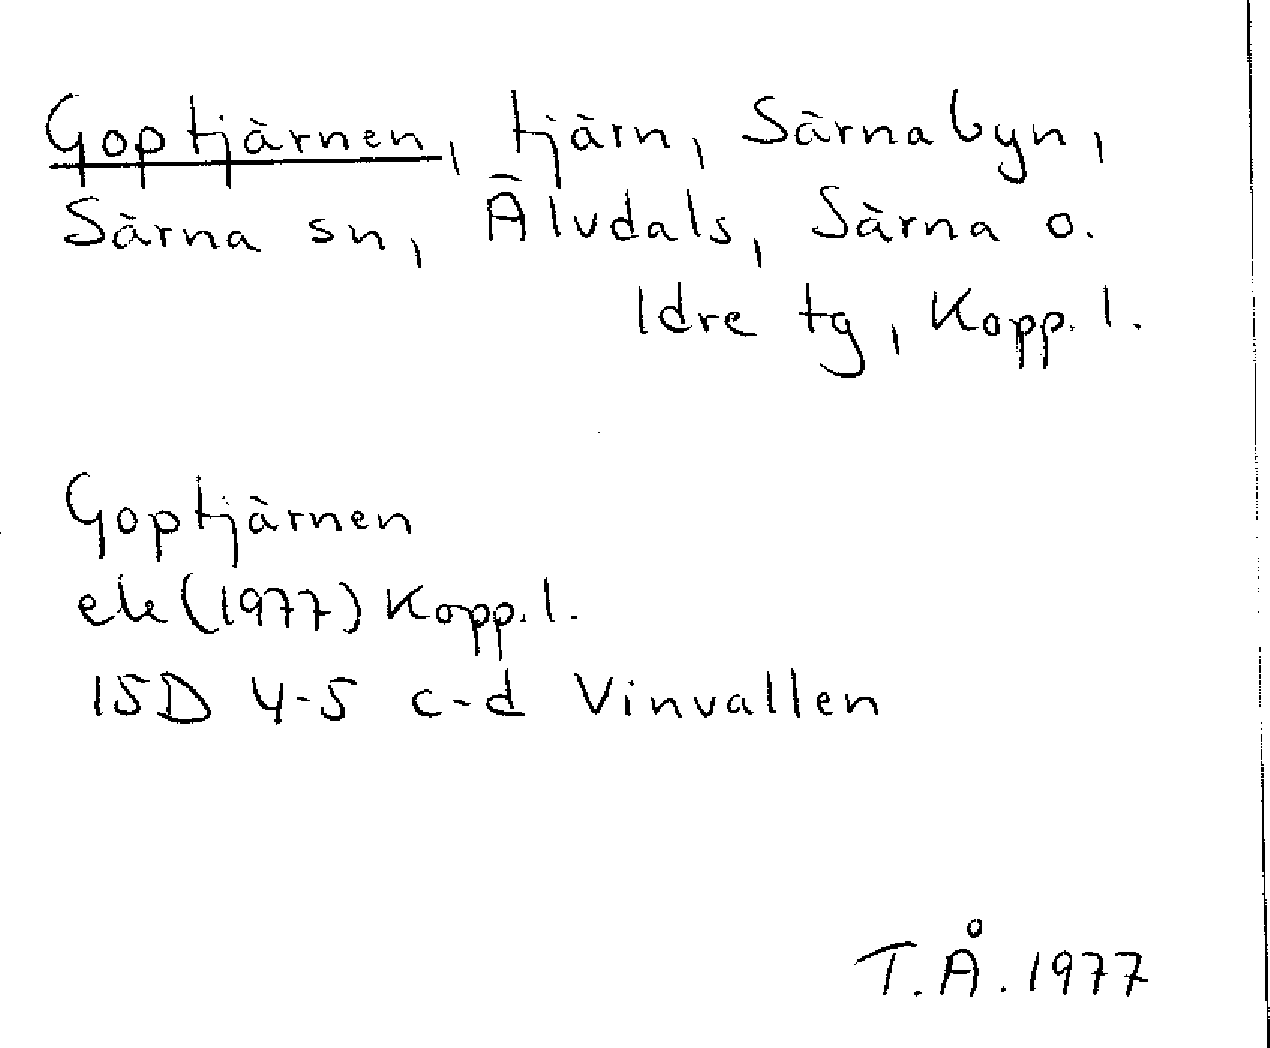 Goptjärnen, tjärn, Särnabyn,
Särna sn, Älvdals, Särna o.
Idre tg, Kopp. l.
Goptjärnen
ek (1977) Kopp. l.
15D 4-5 c-d Vinvallen
T.Å. 1977